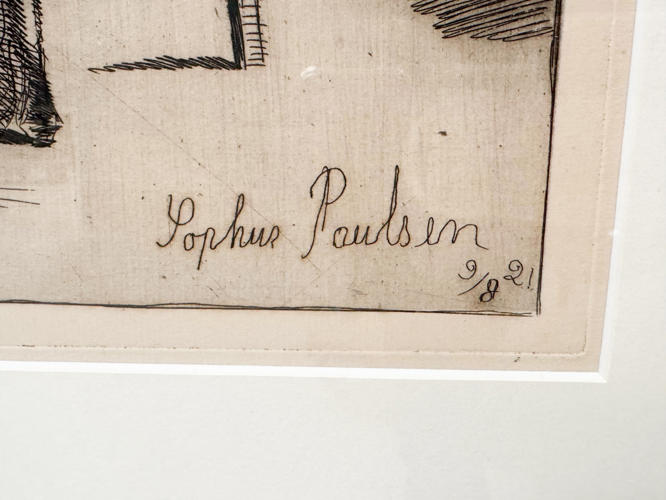 Sophus Paulsen
9/8 21